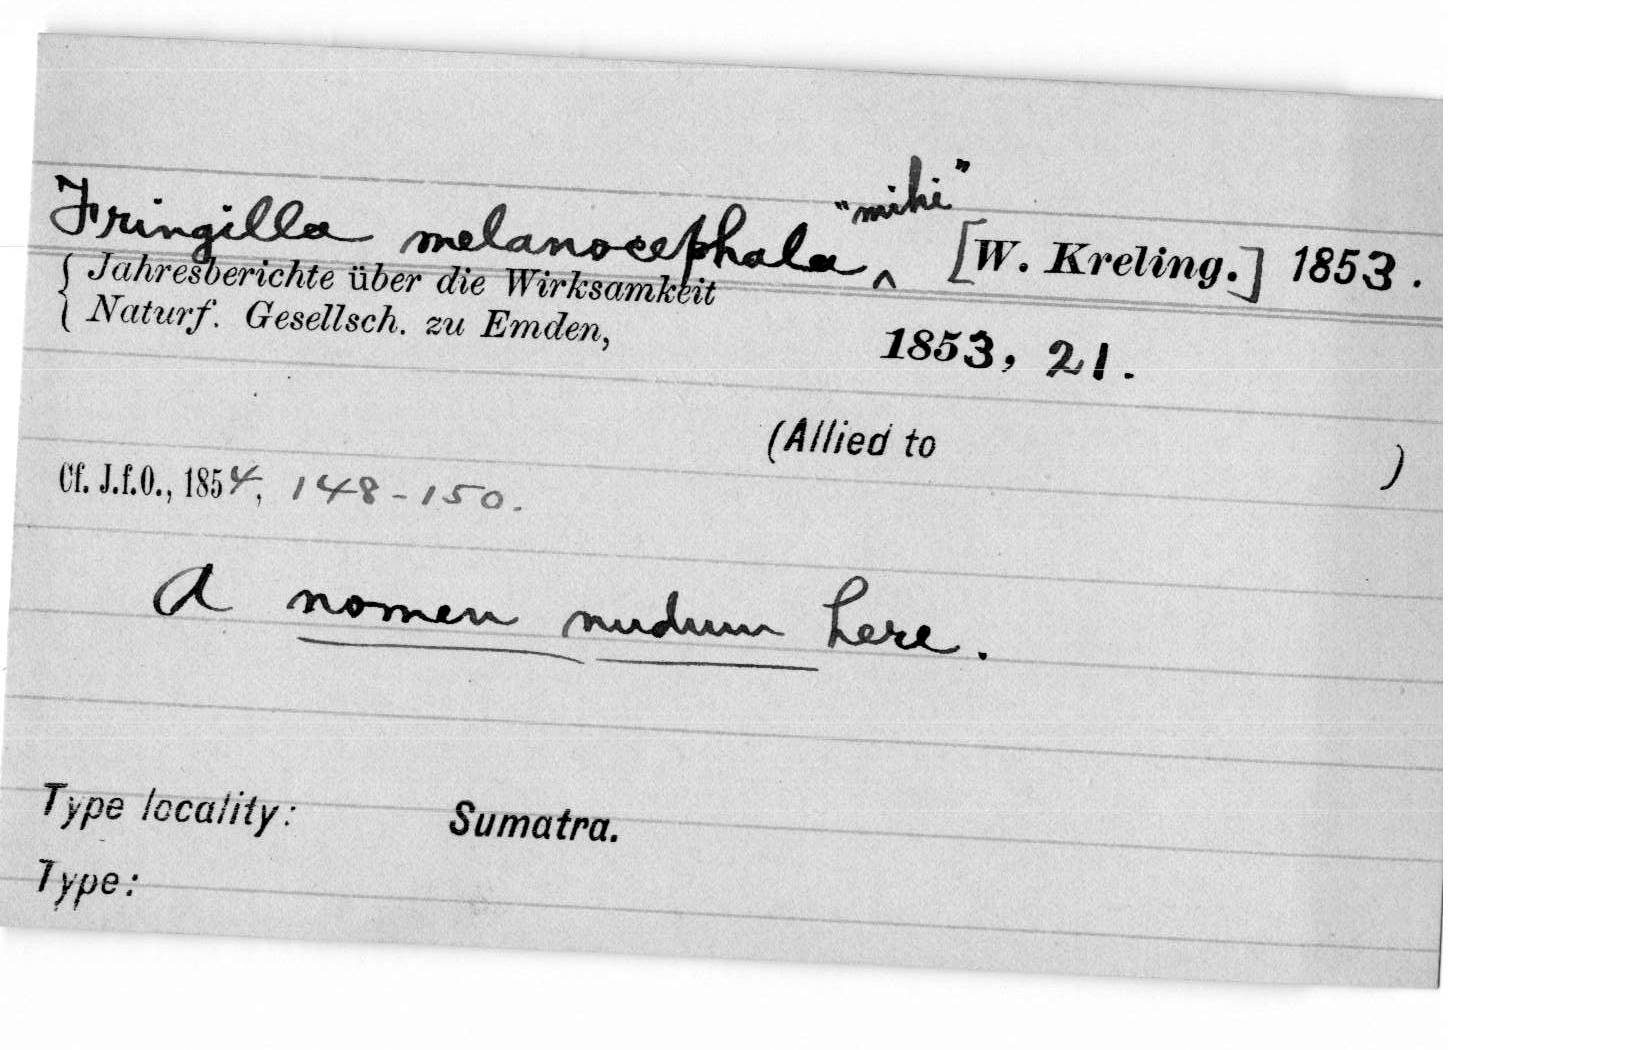 Fringilla melanocephala ‸ "mihi" [W. Kreling.] 1853.
{ Jahresberichte über die Wirksamkeit
{ Naturf. Gesellsch. zu Emden, 1853, 21.
(Allied to )
Cf. J.f.O., 1854, 148-150.
A nomen nudum here.
Type locality: Sumatra.
Type: